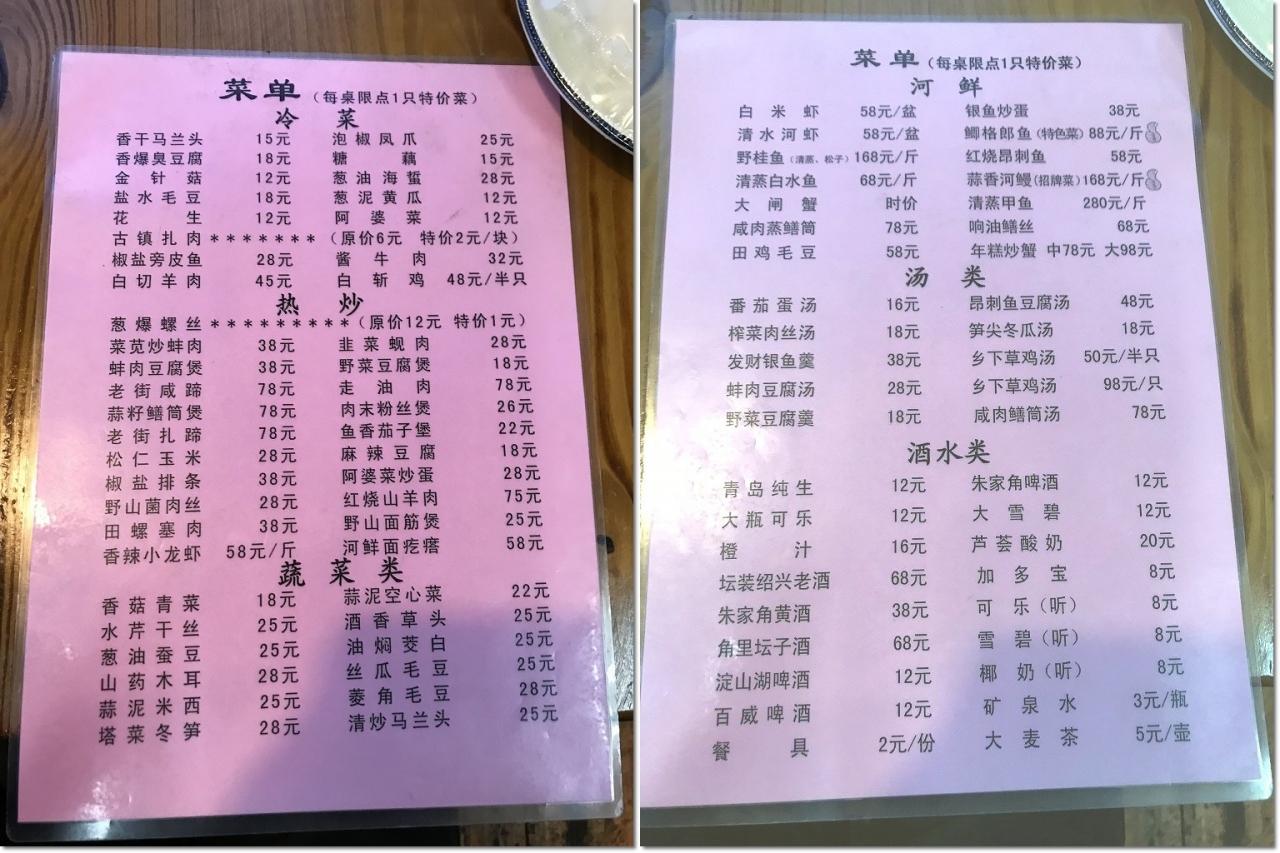 菜单（每桌限点1只特价菜）
冷 菜
香干马兰头 15元 泡椒凤爪 25元
香爆臭豆腐 18元 糖藕 15元
金针菇 12元 葱油海蜇 28元
盐水毛豆 18元 葱泥黄瓜 12元
花生 12元 阿婆菜 12元
古镇扎肉*******（原价6元 特价2元/块）
椒盐旁皮鱼 28元 酱牛肉 32元
白切羊肉 45元 白斩鸡 48元/半只
热 炒
葱爆螺丝*********（原价12元 特价1元）
菜苋炒蚌肉 38元 韭菜蚬肉 28元
蚌肉豆腐煲 38元 野菜豆腐煲 18元
老街咸蹄 78元 走油肉 78元
蒜籽鳝筒煲 78元 肉末粉丝煲 26元
老街扎蹄 78元 鱼香茄子堡 22元
松仁玉米 28元 麻辣豆腐 18元
椒盐排条 38元 阿婆菜炒蛋 28元
野山菌肉丝 28元 红烧山羊肉 75元
田螺塞肉 38元 野山面筋煲 25元
香辣小龙虾 58元/斤 河鲜面疙瘩 58元
蔬 菜 类
香菇青菜 18元 蒜泥空心菜 22元
水芹干丝 25元 酒香草头 25元
葱油蚕豆 25元 油焖茭白 25元
山药木耳 28元 丝瓜毛豆 25元
蒜泥米西 25元 菱角毛豆 28元
塔菜冬笋 28元 清炒马兰头 25元
菜单（每桌限点1只特价菜）
河 鲜
白米虾 58元/盆 银鱼炒蛋 38元
清水河虾 58元/盆 鲫格郎鱼（特色菜）88元/斤
野桂鱼（清蒸、松子）168元/斤 红烧昂刺鱼 58元
清蒸白水鱼 68元/斤 蒜香河鳗（招牌菜）168元/斤
大闸蟹 时价 清蒸甲鱼 280元/斤
咸肉蒸鳝筒 78元 响油鳝丝 68元
田鸡毛豆 58元 年糕炒蟹 中78元 大98元
汤 类
番茄蛋汤 16元 昂刺鱼豆腐汤 48元
榨菜肉丝汤 18元 笋尖冬瓜汤 18元
发财银鱼羹 38元 乡下草鸡汤 50元/半只
蚌肉豆腐汤 28元 乡下草鸡汤 98元/只
野菜豆腐羹 18元 咸肉鳝筒汤 78元
酒水类
青岛纯生 12元 朱家角啤酒 12元
大瓶可乐 12元 大雪碧 12元
橙汁 16元 芦荟酸奶 20元
坛装绍兴老酒 68元 加多宝 8元
朱家角黄酒 38元 可乐（听） 8元
角里坛子酒 68元 雪碧（听） 8元
淀山湖啤酒 12元 椰奶（听） 8元
百威啤酒 12元 矿泉水 3元/瓶
餐具 2元/份 大麦茶 5元/壶